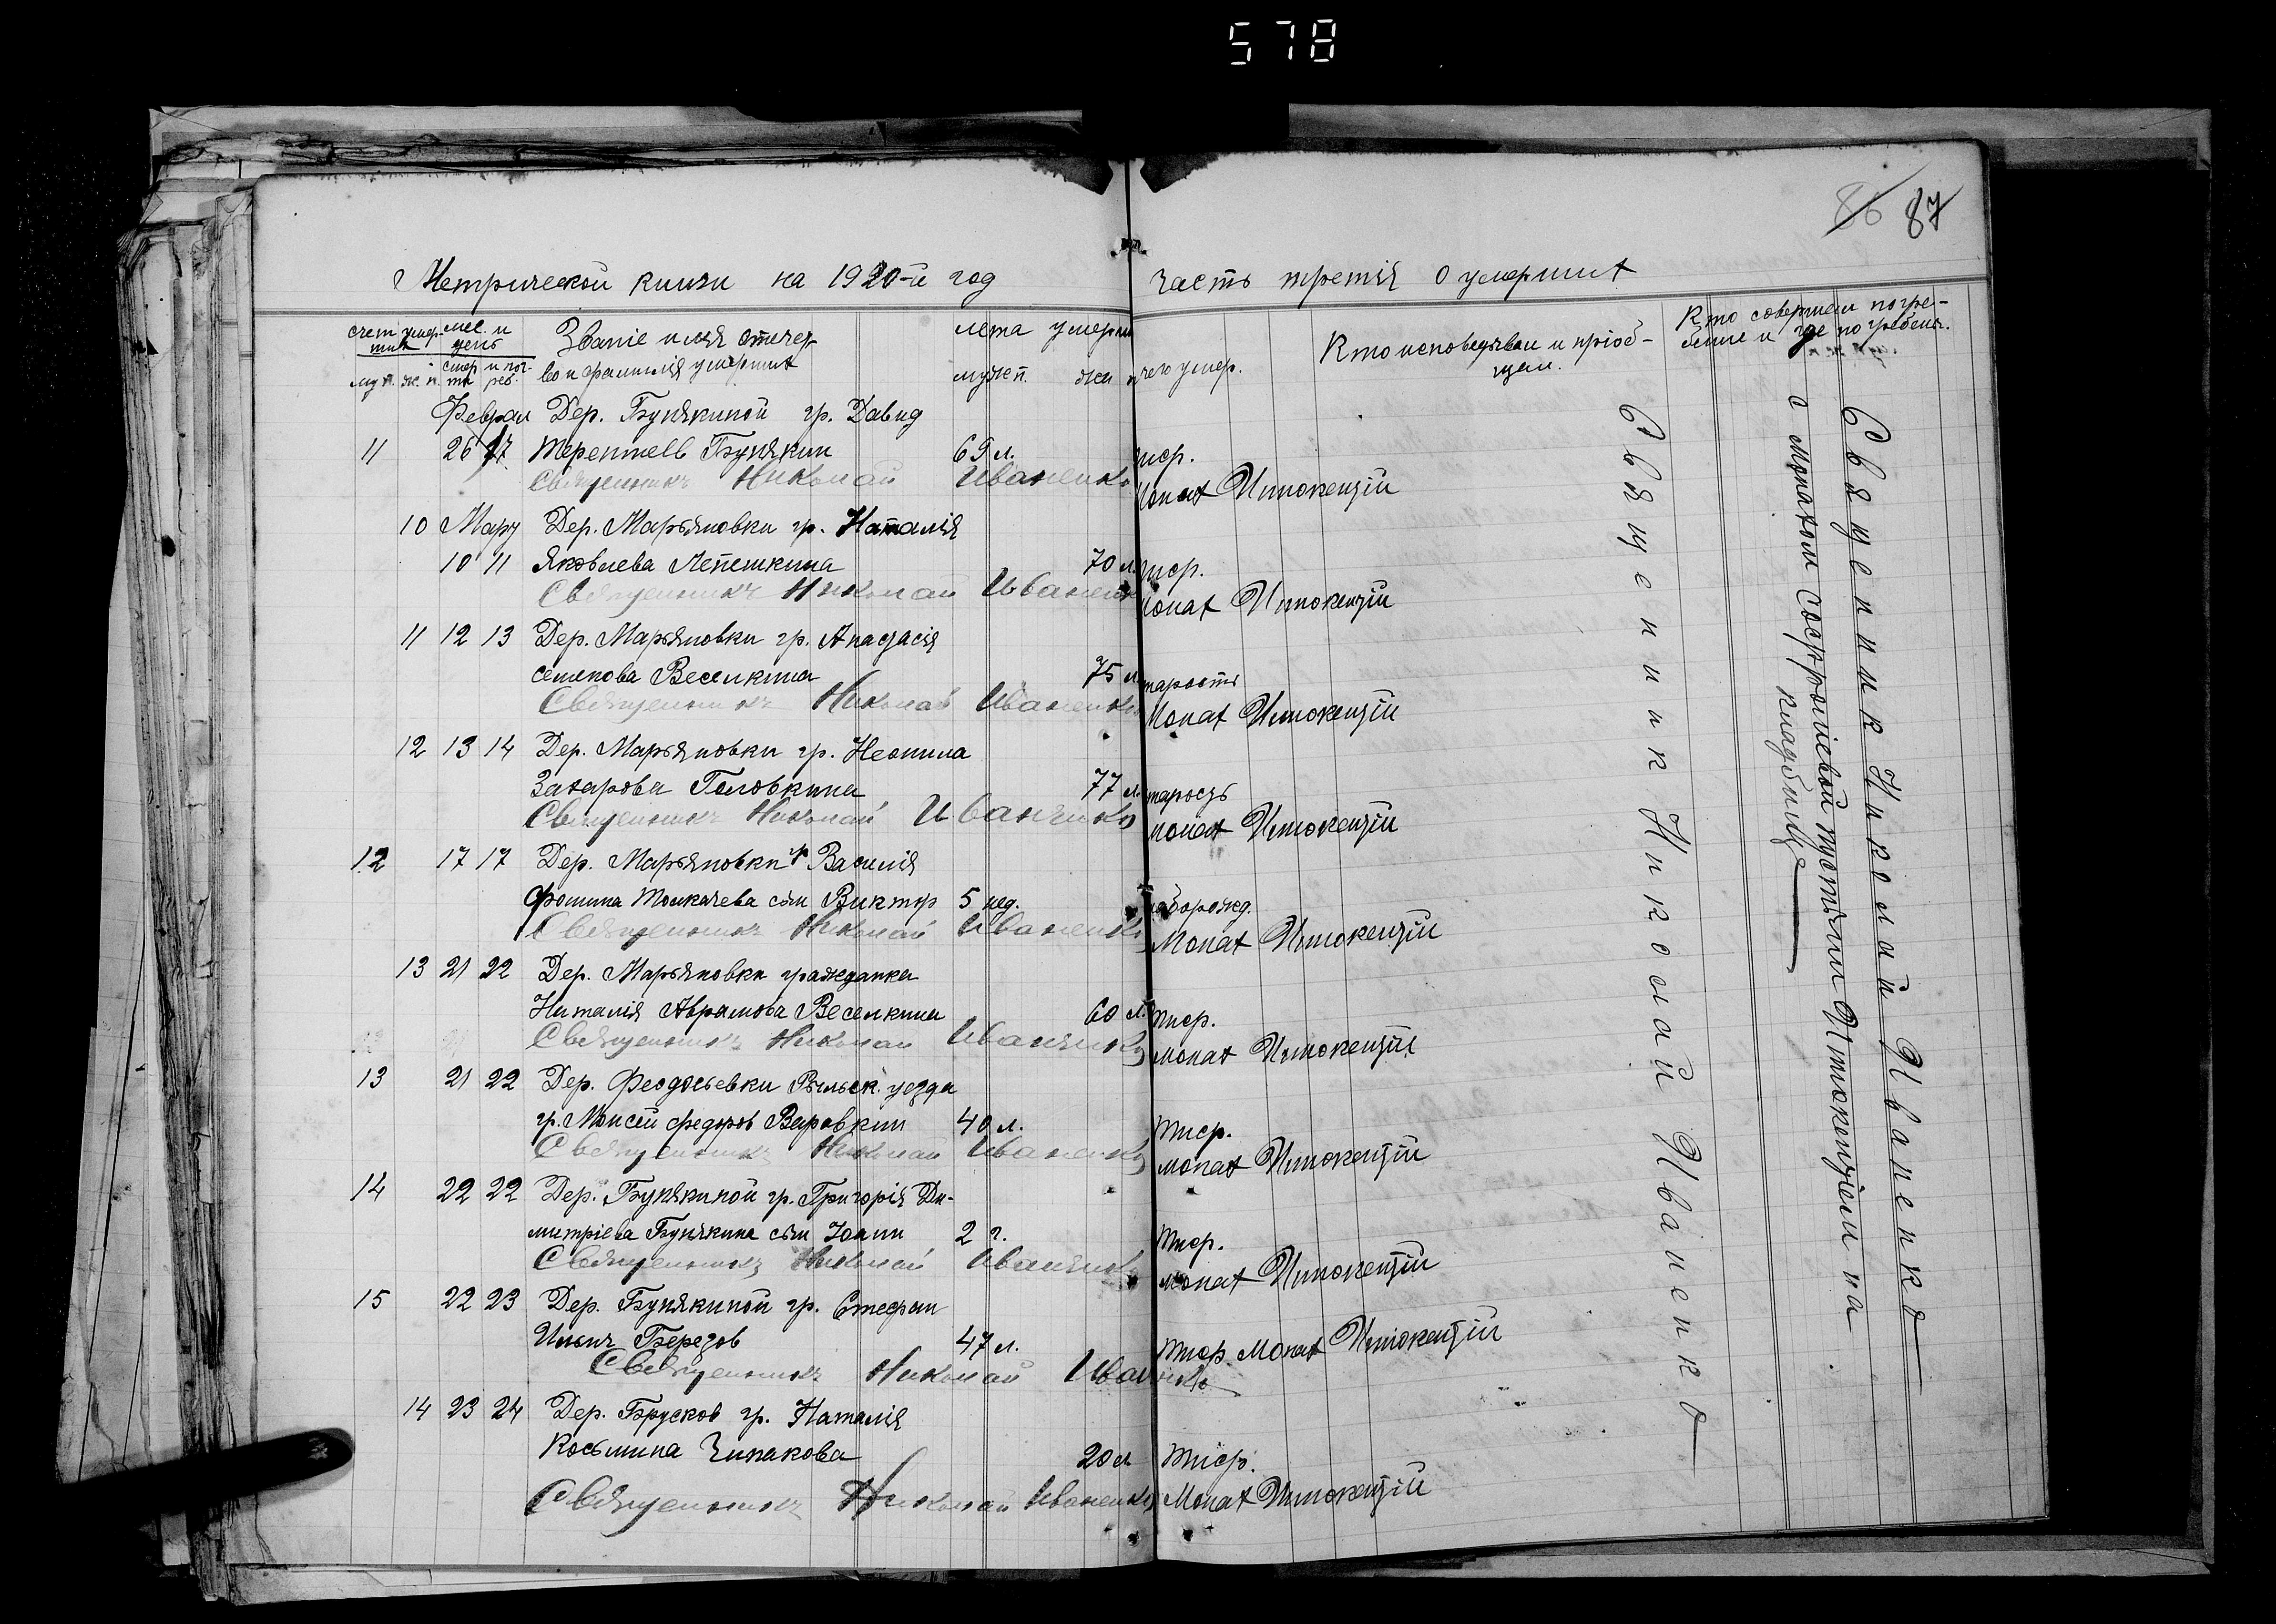 578
86 87
Метрической книги на 1920-й год часть третія о умерших
счет умер- мес. и
ших день
Званіе имя отчест-
лета умерш
Кто исповедывал и пріоб-
щал.
Кто совершал погре-
бение и где погребены.
муж. п. ж. п.
во и фамилія умерших
муж п. жен п
чего умер.
Феврал Дер. Бунякиной гр. Давид
11 26 27 Терентьев Бунякин 69 л. тиф.
Священникъ Николай Иваненко Монах Иннокентій
10 Март Дер. Марьяновки гр. Наталія
10 11 Яковлева Лепешкина 70 л. тиф.
Священникъ Николай Иваненко Монах Иннокентій
11 12 13 Дер. Марьяновки гр. Анастасія
Семенова Веселкина 75 л. тарость
Священникъ Николай Иваненко Монах Иннокентій
12 13 14 Дер. Марьяновки гр. Неонила
Захарова Головкина 77 л. тарость
Священникъ Николай Иваненко Монах Иннокентій
12 17 17 Дер. Марьяновки гр Василія
Фомина Толкачева сын Виктор 5 нед. слаборожд.
Священникъ Николай Иваненко Монах Иннокентій
13 21 22 Дер. Марьяновки гражданка
Наталія Аврамова Веселкина 60 л. тиф.
Священникъ Николай Иваненко Монах Иннокентій
13 21 22 Дер. Феодосьевки Рыльск. уезда
гр. Моисей Федоров Воровкин 40 л. тиф.
Священникъ Николай Иваненко Монах Иннокентій
14 22 22 Дер. Бунякиной гр. Григорія Ди-
митріева Бунякина сын Іоанн 2 г. тиф.
Священникъ Николай Иваненко Монах Иннокентій
15 22 23 Дер. Бунякиной гр. Стефан
Ильич Березов 47 л. тиф. Монах Иннокентій
Священникъ Николай Иваненко
14 23 24 Дер. Брусков гр. Наталія
Косьмина Чипакова 20 л тиф.
Священникъ Николай Иваненко Монах Иннокентій
Священник Николай Иваненко
Священник Николай Иваненко
с Монахом Софроніевой пустыни Иннокентіем на
кладбище